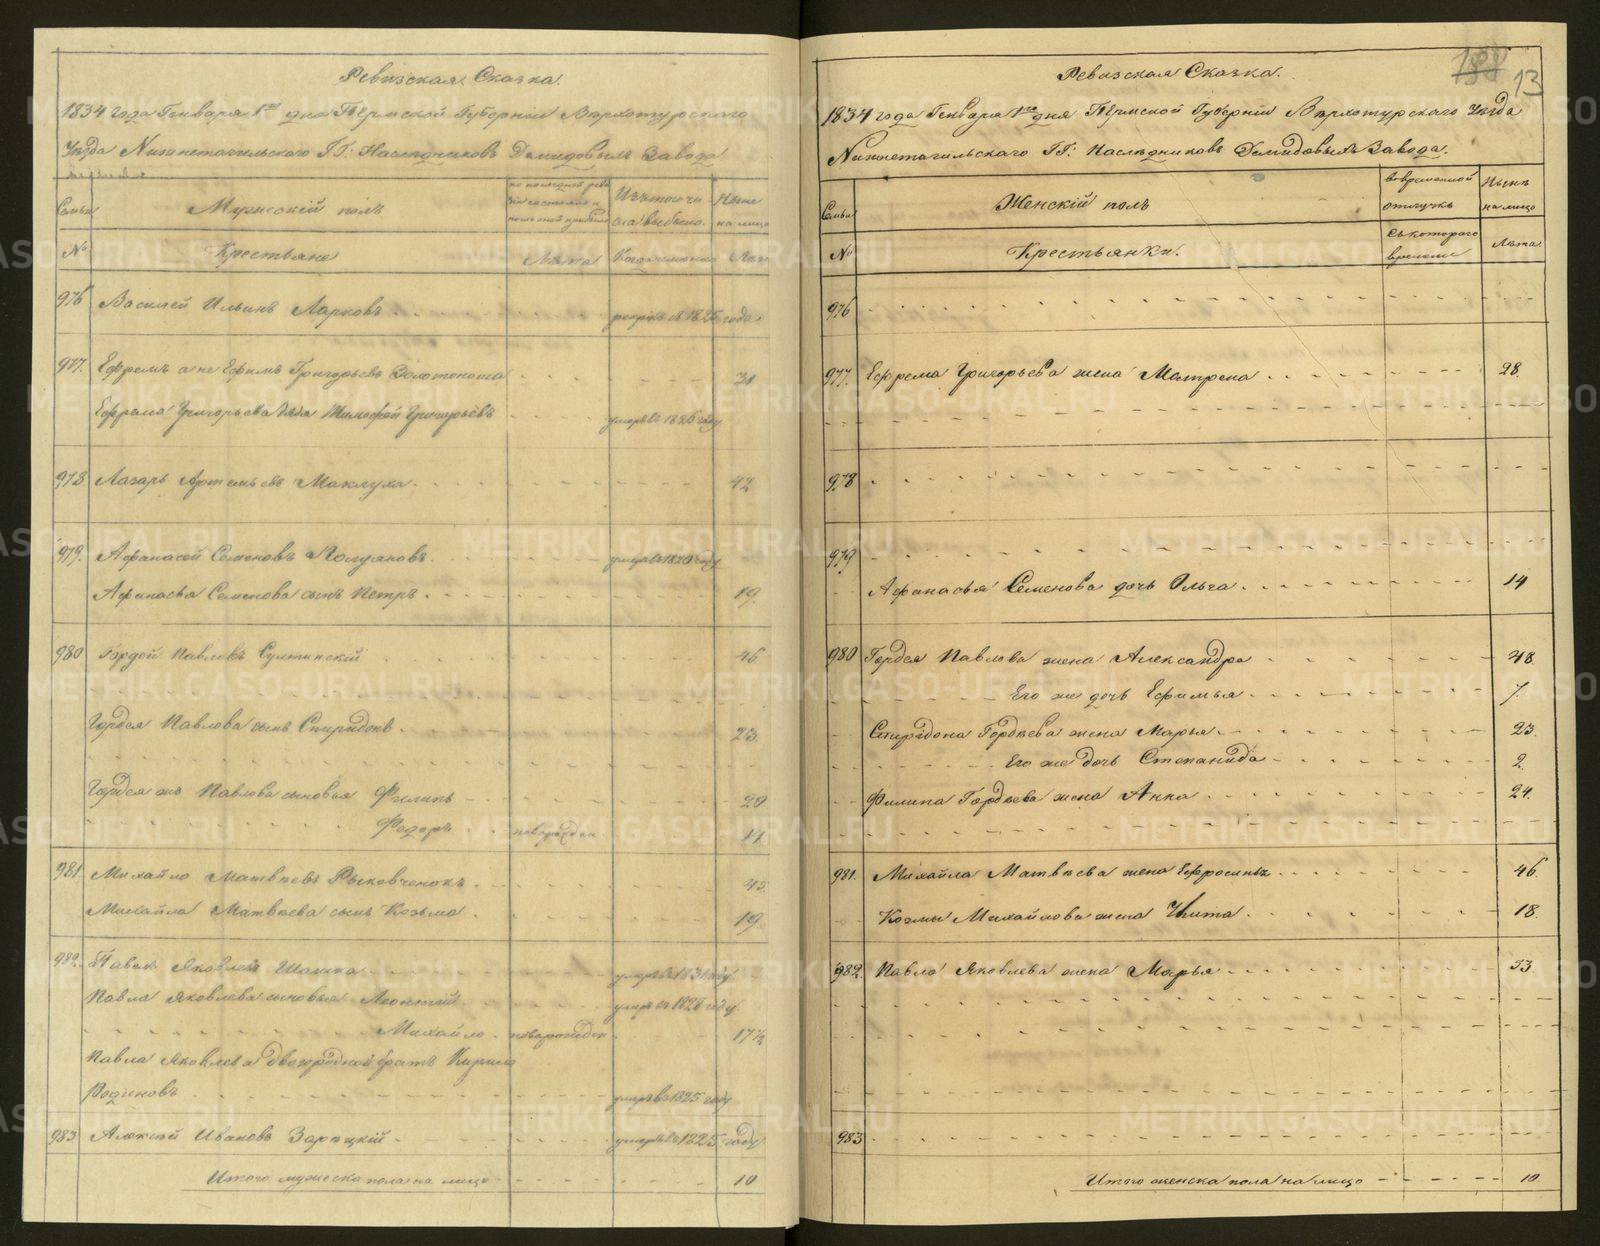 Ревизская Сказка.
1834 года Генваря 1го дня Пермской Губернии Верхотурскаго
Уезда Нижнетагильскаго ГГ: Наследниковъ Демидовыхъ Завода
Семьи
Мужескій полъ
по последней ревизіи состояло и
после оной прибыло
Изътого числа выбыло.
Ныне
на лицо
№
Крестьяне
Лета
Когда именно
Лета
976 Василей Ильинъ Ларковъ рекрутъ съ 1825 года
977. Ефремъ а не Ефимъ Григорьевъ Золотоноша 31
Ефрема Григорьева дядя Григорьевъ умеръ въ 1826 году
978 Лазарь Артемьевъ Маклуха 42
979. Афанасей Семеновъ Полуяновъ умеръ въ году
Афанасья Семенова сынъ Петръ 19.
980 Гордей Павловъ 46
Гордея Павлова сынъ Спиридонъ 23.
Гордея жъ Павлова сыновья Филипъ 20
Федоръ новорожден. 11
981. Михайло Матвеевъ Рыковченокъ 45
Михайла Матвеева сынъ Козьма 19
982. Павелъ Яковлевъ Шашка умеръ въ 1831 году
Павла Яковлева сыновья Леонтій умеръ въ 1826 году
Михайло новорожден. 17½
Павла Яковлева двоюродной братъ Кирило
Родионовъ умеръ въ 1825 году
983 Алексей Ивановъ Зарецкій умеръ въ 1825 году
Итого мужеска пола на лицо 10
188 13
Ревизская Сказка.
1834 года Генваря 1го дня Пермской Губерніи Верхотурскаго Уезда
Нижнетагильскаго ГГ: Наследниковъ Демидовыхъ Завода.
Семьи
Женскій полъ
во временной
отлучке
Ныне
на лицо
№
Крестьянки.
Съ котораго
времени
Лета
976
977. Ефрема Григорьева жена Матрена 28.
978
979
Афанасья Семенова дочь Ольга 14
980 Гордея Павлова жена Александра 48.
Его же дочь Ефимья 7.
Спиридона Гордеева жена Марья 23.
Его же дочь Степанида 2
Филипа Гордеева жена Анна 24.
981. Михайла Матвеева жена Ефросинья 46.
Козмы Михайлова жена Улита 18.
982. Павла Яковлева жена Марья 53.
983
Итого женска пола на лицо 10
METRIKI.GASO-URAL.RU